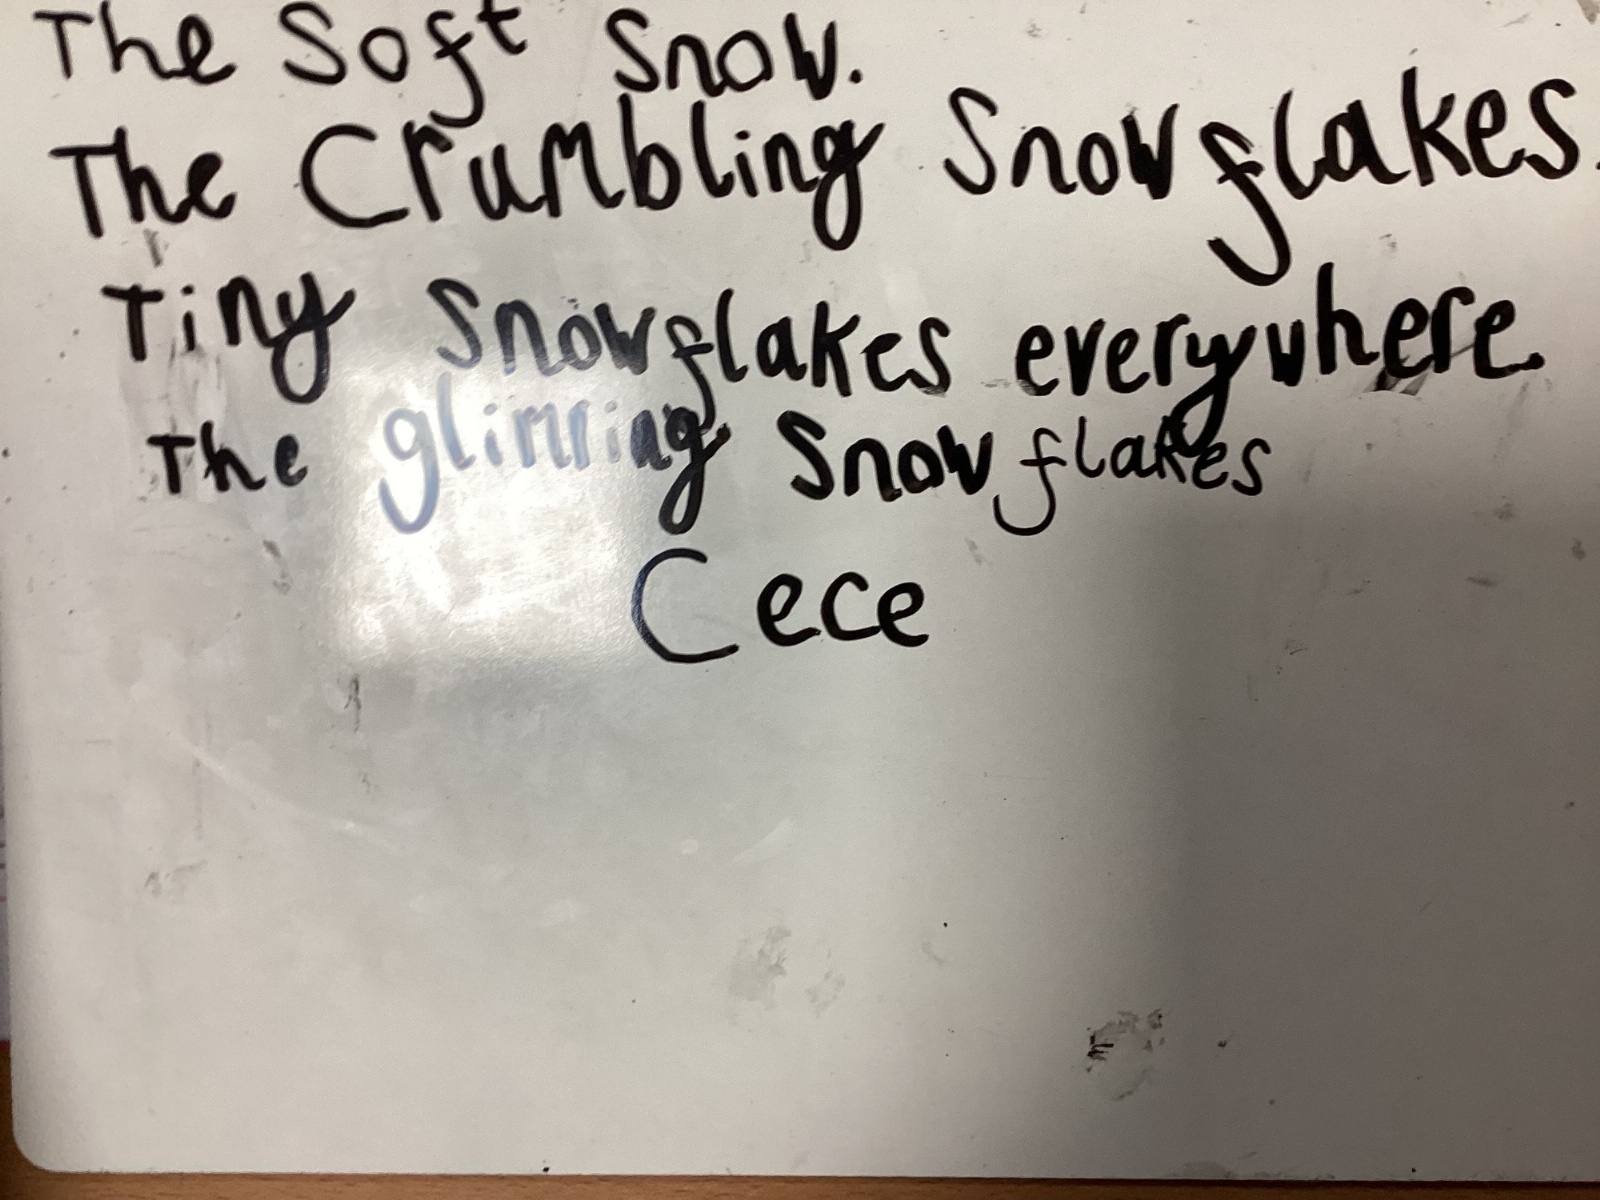 The Soft Snow.
The Crumbling Snowflakes.
Tiny Snowflakes everywhere.
The glimring Snowflakes
Cece